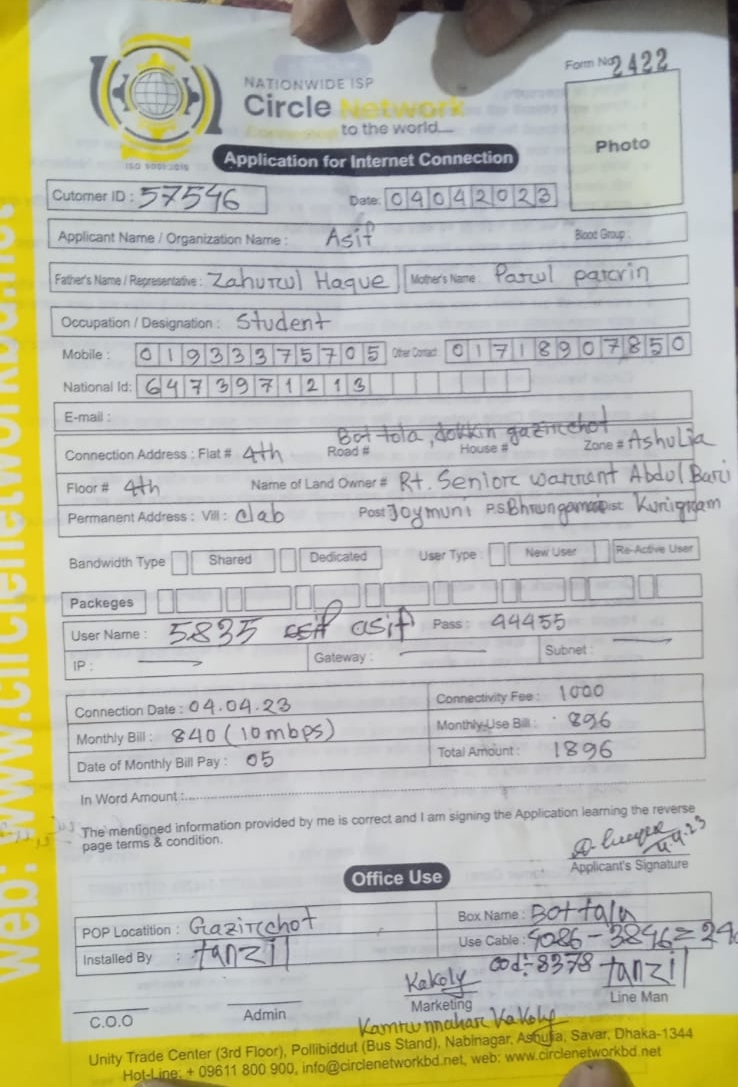 Form No 2422
NATIONWIDE ISP
Circle Network
to the world....
ISO 9001:2015
Photo
Application for Internet Connection
Cutomer ID : 57546 Date: 04042023
Applicant Name / Organization Name : Asif Blood Group :
Father's Name / Representative : Zahurul Haque Mother's Name : Parul parvin
Occupation / Designation : Student
Mobile : 01933375705 Other Contact 01718907850
National Id: 6473971213
E-mail :
Bot tola, dokkin gazirchot
Connection Address : Flat # 4th Road # House # Zone # Ashulia
Floor # 4th Name of Land Owner # Rt. Senior warrent Abdul Bari
Permanent Address : Vill : Post Joymuni P.S Dist: Kurigram
Bandwidth Type Shared Dedicated User Type : New User Re-Active User
Packeges
User Name : 5835 asif Pass : 44455
IP : Gateway : Subnet :
Connection Date : 04.04.23 Connectivity Fee : 1000
Monthly Bill : 840 (10mbps) Monthly Use Bill : 896
Date of Monthly Bill Pay : 05 Total Amount : 1896
In Word Amount :
The mentioned information provided by me is correct and I am signing the Application learning the reverse
page terms & condition.
4.4.23
Applicant's Signature
Office Use
POP Locatition : Gazirchot Box Name : Bottala
Installed By : tanzil Use Cable : 4086 - 3846 = 24
cod:- 8378
Kakoly tanzil
C.O.O Admin Marketing Line Man
Kamrunnahar Kakoly
Unity Trade Center (3rd Floor), Pollibiddut (Bus Stand), Nabinagar, Ashulia, Savar, Dhaka-1344
Hot-Line: + 09611 800 900, info@circlenetworkbd.net, web: www.circlenetworkbd.net
web: www.circlenetworkbd.net